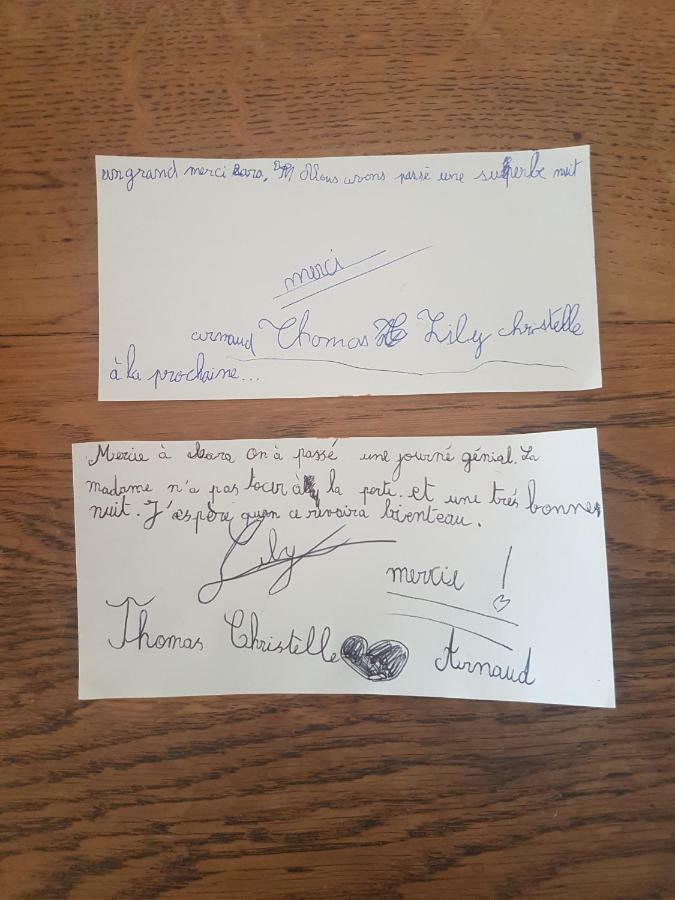 un grand merci Sara, Nous avons passé une superbe nuit
merci
arnaud Thomas Lily christelle
à la prochaine...
Mercie à Sara on à passé une journé génial. La
madame n'a pas tocur à la porte. et une très bonne
nuit. J'æspère quon ce revoira bienteau.
Lily
mercie !
Thomas Christelle Arnaud